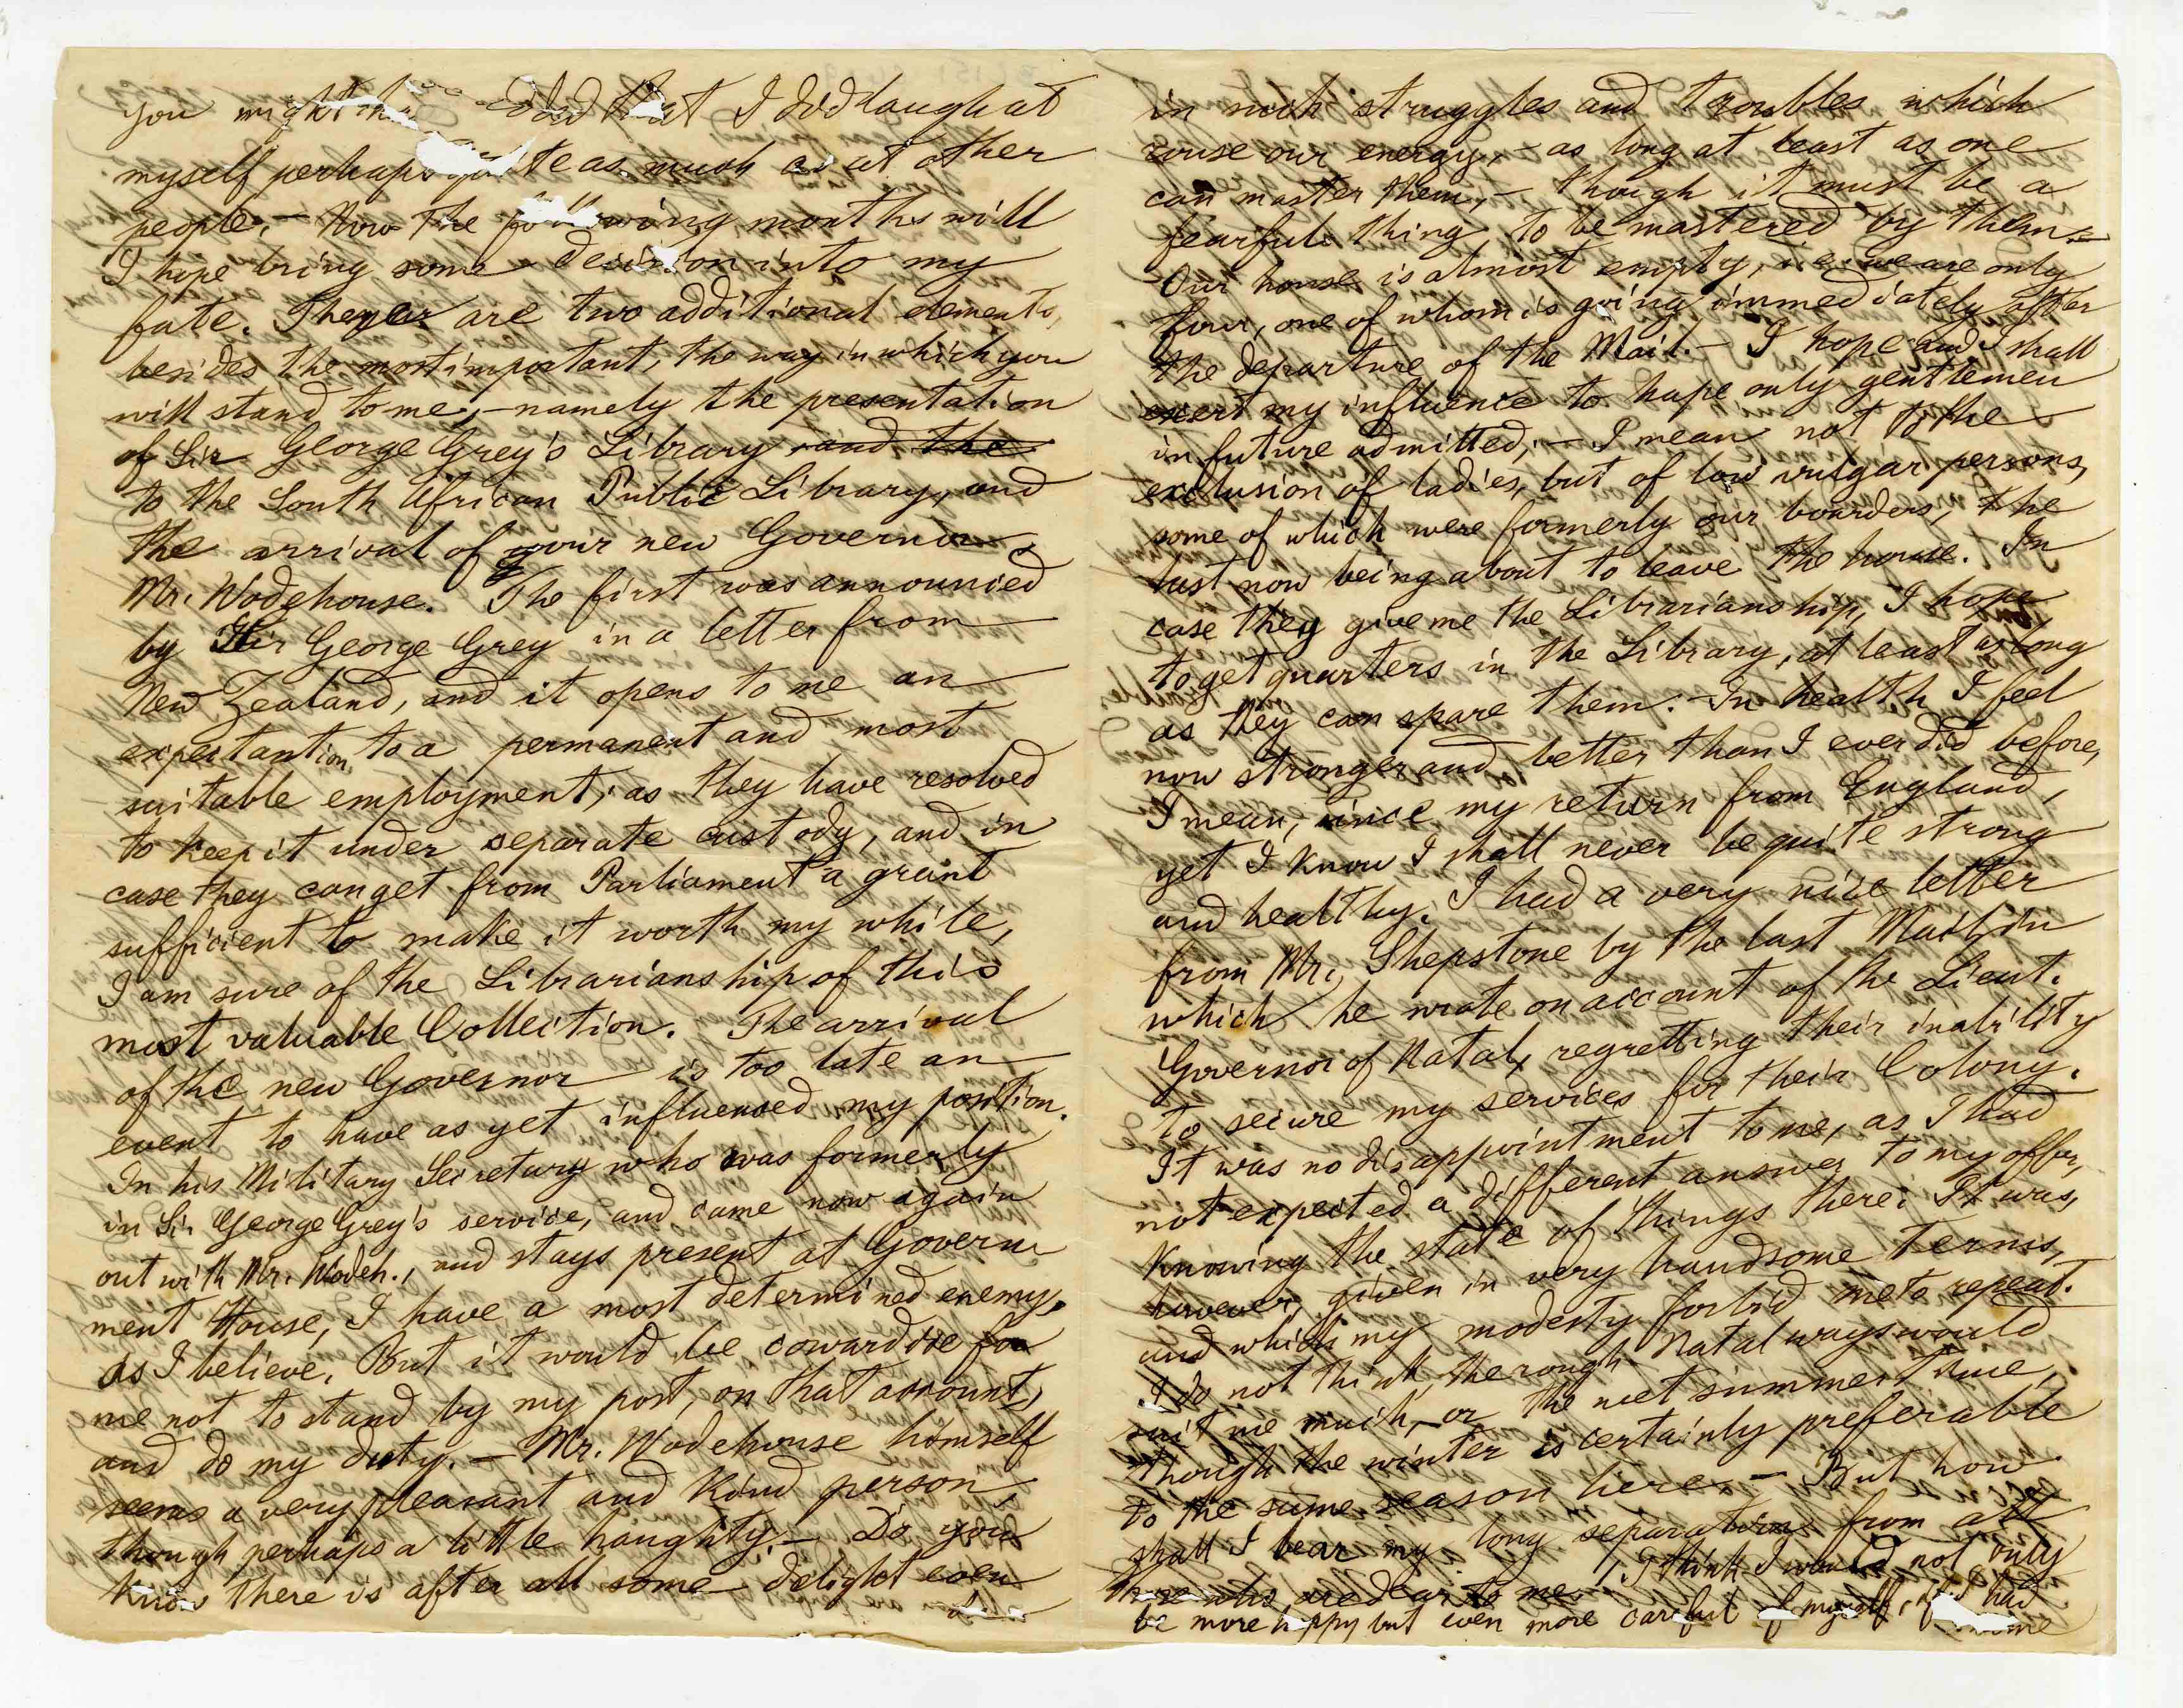 you might  that I did laugh at
myself perhaps quite as much as at other
people. – Now the following months will
I hope bring some decision into my
fate. There are two additional elements,
besides the most important, the way in which you
will stand to me, – namely the presentation
of Sir George Grey's Library and the
to the South African Public Library, and
the arrival of your new Governor,
Mr. Wodehouse. The first was announced
by Sir George Grey in a letter from
New Zealand, and it opens to me an
expectantion to a permanent and most
suitable employment, as they have resolved
to keep it under separate custody, and in
case they can get from Parliament a grant
sufficient to make it worth my while,
I am sure of the Librarianship of this
most valuable Collection. The arrival
of the new Governor is too late an
event to have as yet influenced my position.
In his Military Secretary who was formerly
in Sir George Grey's service, and came now again
out with Mr. Wodeh., and stays present at Govern
ment House, I have a most determined enemy,
as I believe. But it would be cowardice for
me not to stand by my post, on that account,
and do my duty. – Mr. Wodehouse himself
seems a very pleasant and kind person,
though perhaps a little haughty. – Do you
know there is after all some delight even
in such struggles and troubles which
rouse our energy, – as long at least as one
can master them, – though it must be a
fearful thing, to be mastered by them. –
Our house is almost empty, i.e. we are only
four, one of whom is going immediately after
the departure of the Mail. – I hope and I shall
exert my influence to hape only gentlemen
in future admitted; – I mean not to the
exclusion of ladies, but of low vulgar persons,
some of which were formerly our boarders, the
last now being about to leave the house. In
case they give me the Librarianship, I hope
to get quarters in the Library, at least as long
as they can spare them. – In health I feel
now stronger and better than I ever did before,
I mean, since my return from England,
yet I know I shall never be quite strong
and healthy. I had a very nice letter
from Mr. Shepstone by the last Mail, in
which he wrote on account of the Lieut.
Governor of Natal, regretting their inability
to secure my services for their Colony.
It was no disappointment to me, as I had
not expected a different answer to my offer,
knowing the state of things there. It was,
however, given in very handsome terms,
and which my modesty forbid me to repeat.
I do not think the rough Natal ways would
suit me much, – or the wet summer time,
though the winter is certainly preferable
to the same season here. – But how
shall I bear my long separation from all
those who are dear to me. I think I would not only
be more happy but even more careful of myself, if I had